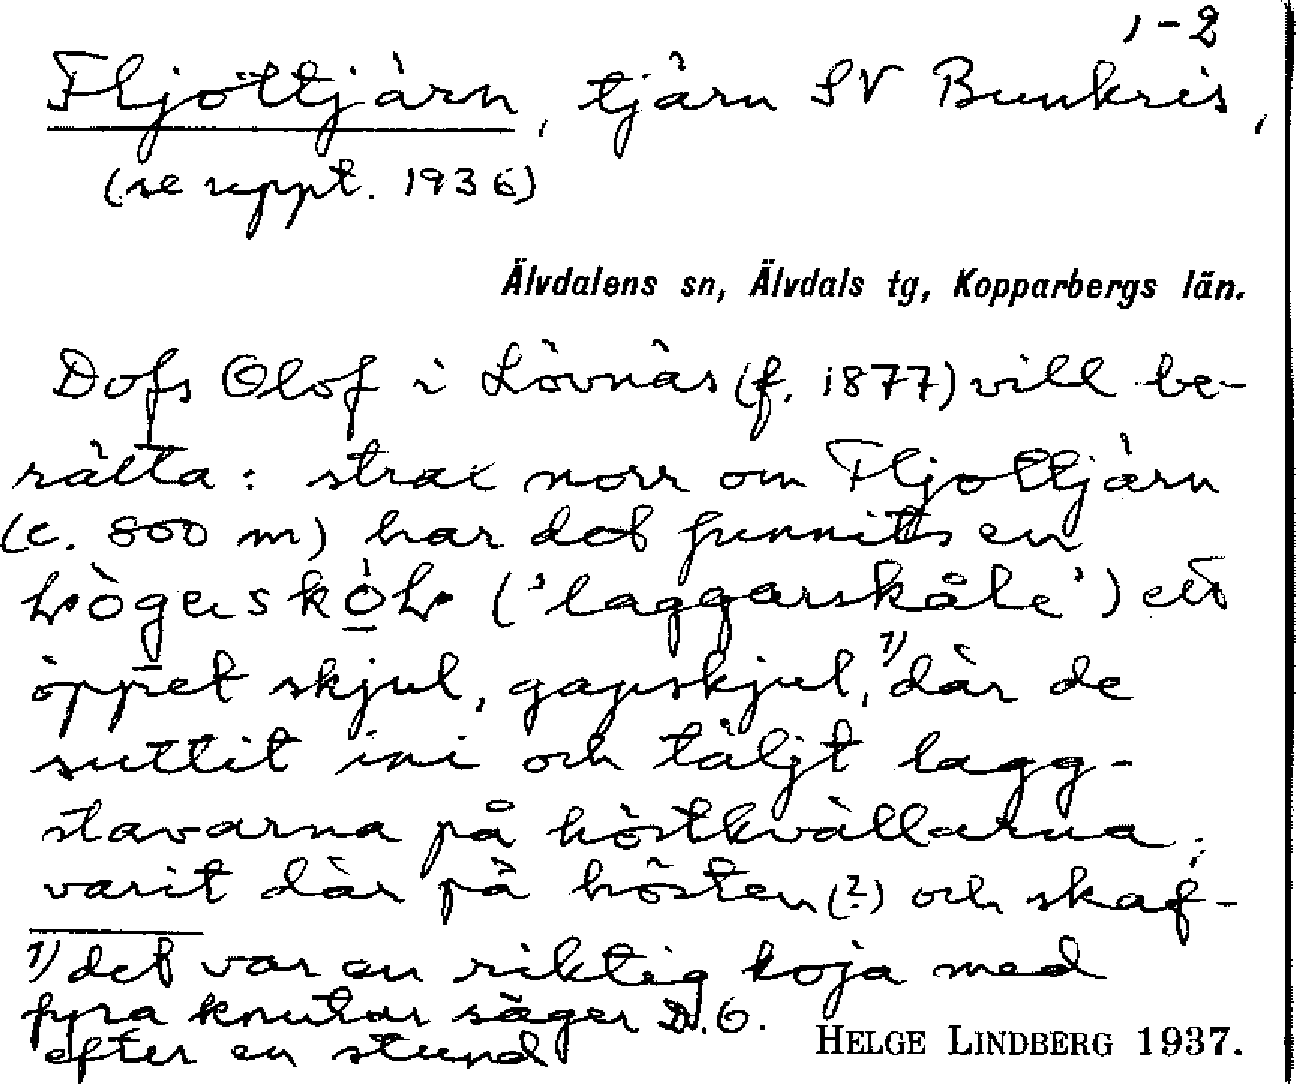 1-2
Fljöttjärn, tjärn SV Bunkris,
(se uppt. 1936)
Älvdalens sn, Älvdals tg, Kopparbergs län.
Dofs Olof i Lövnäs (f. 1877) vill be-
rätta: strax norr om Fljottjärn
(c. 800 m) har det funnits en
('laggarskåle') ett
öppet skjul, gapskjul,¹⁾ där de
suttit ini och täljt lagg-
stavarna på höstkvällarna;
varit där på hösten (?) och skaf-
¹⁾ det var en riktig koja med
fyra knutar säger D.O.
efter en stund
HELGE LINDBERG 1937.